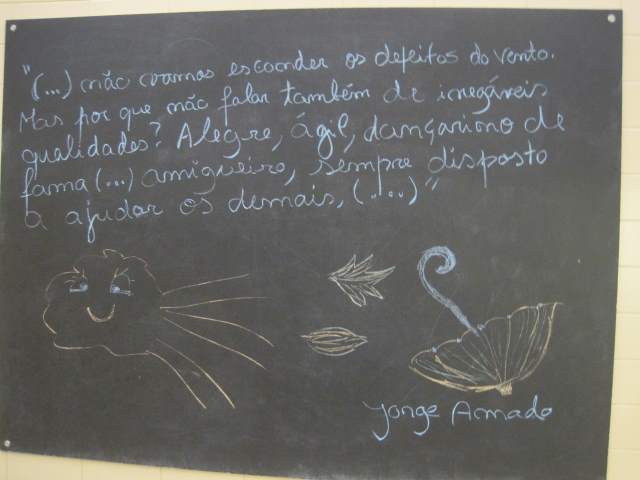 "(...) não vamos esconder os defeitos do vento.
Mas por que não falar também de inegáveis
qualidades? Alegre, ágil, dançarino de
fama (...) amigueiro, sempre disposto
a ajudar os demais, (.....)"
Jorge Amado